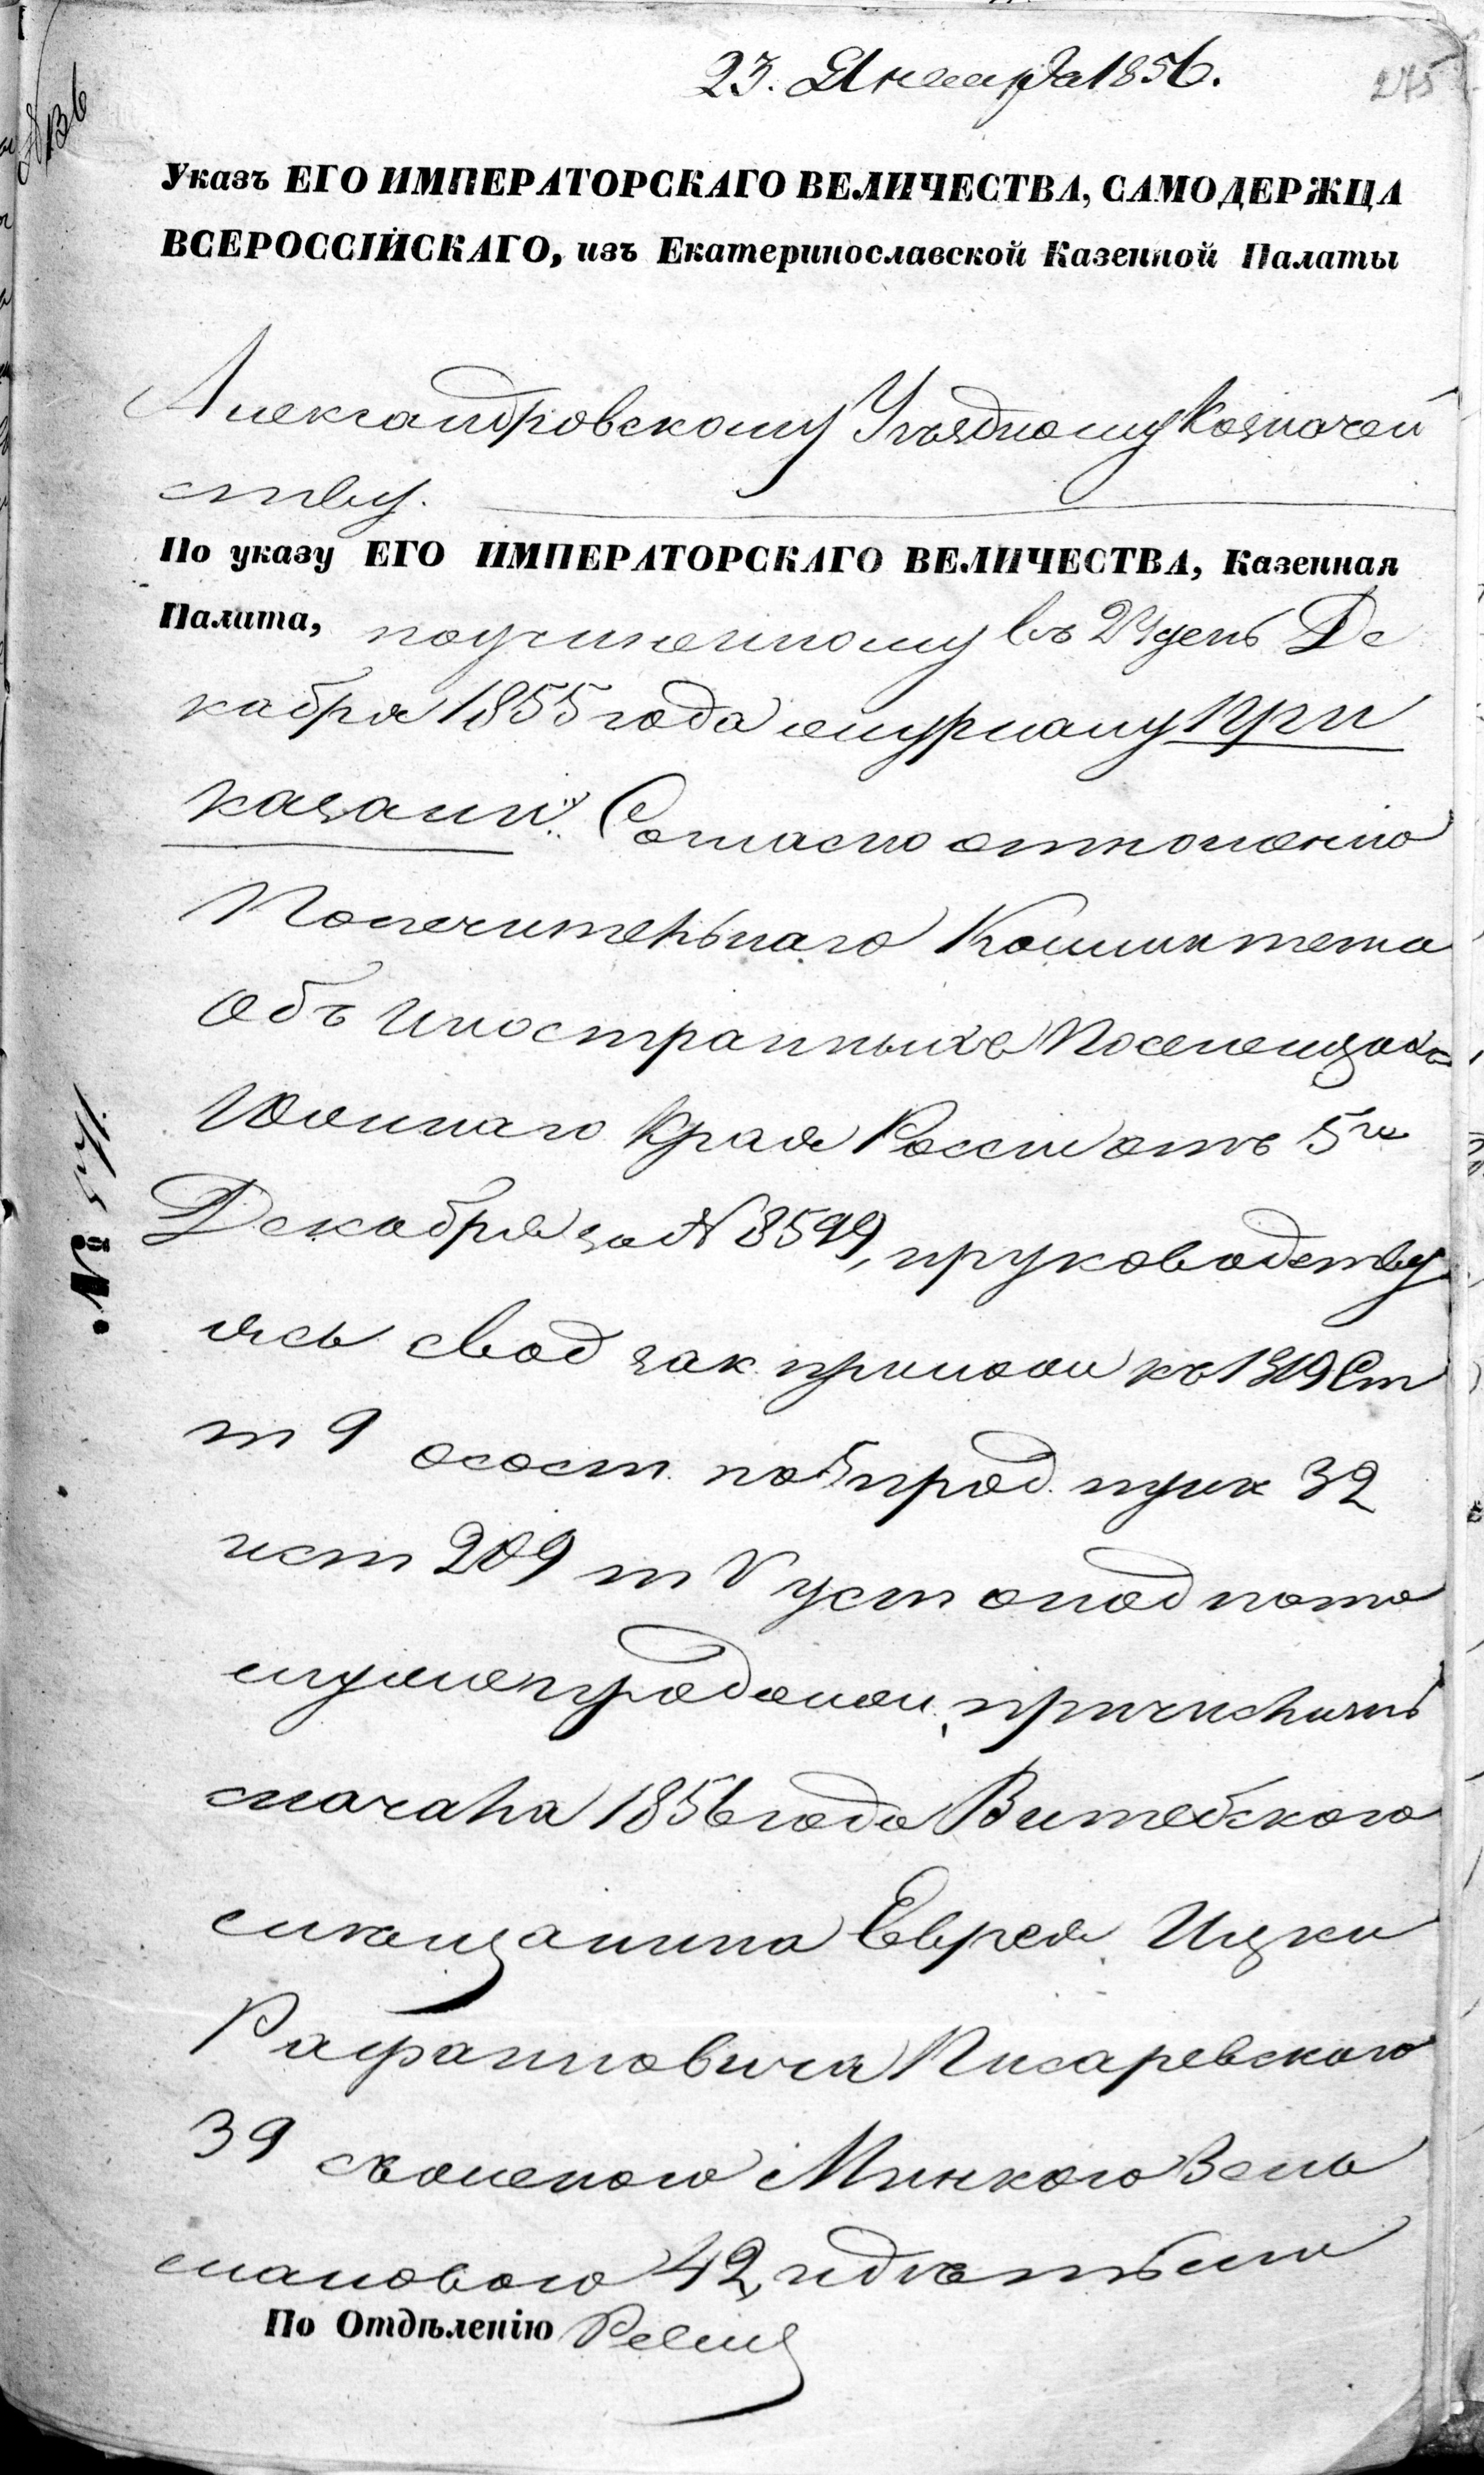 23. Января 1856.
275
Указъ ЕГО ИМПЕРАТОРСКАГО ВЕЛИЧЕСТВА, САМОДЕРЖЦА
ВСЕРОССІЙСКАГО, изъ Екатеринославской Казенной Палаты
Александровскому Уѣздному Казначей
ству.
По указу ЕГО ИМПЕРАТОРСКАГО ВЕЛИЧЕСТВА, Казенная
Палата, поучиненному въ 24 день Де
кабря 1855 года журналу При
казали: Согласно отношенію
Попечительнаго Комитета
объ Иностранныхъ Поселенцахъ
Южнаго Края Россіи отъ 5го
Декабря за № 8599, ируководству
ясь свод зак. прилож къ 1319 Ст
т 9 осост. по 5 прод. пунк 32
ист 209 т V уст опод потo
муже продолж. причислить
сначала 1856 года Витебскаго
мѣщанина Еврея Ицки
Рафаиловича Писаревского
39 сженою Минкою Зель
мановою 42, идѣтьми
По Отдѣленію
№ 541.